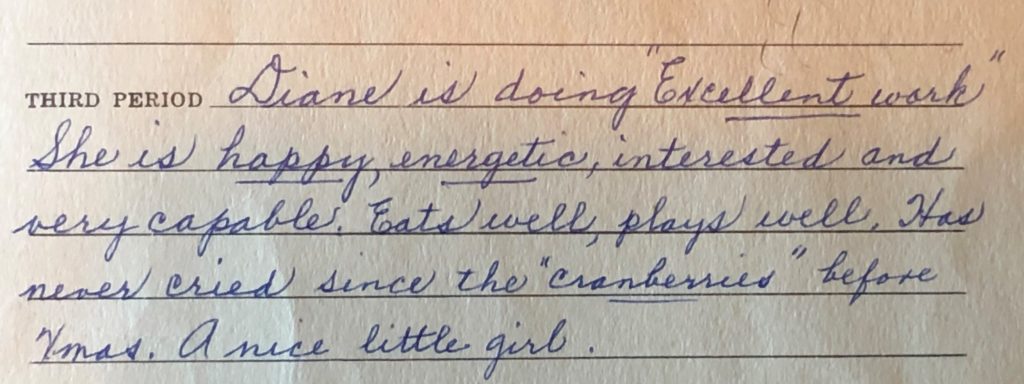 THIRD PERIOD Diane is doing "Excellent work"
She is happy, energetic, interested and
very capable. Eats well, plays well. Has
never cried since the "cranberries" before
Xmas. A nice little girl.